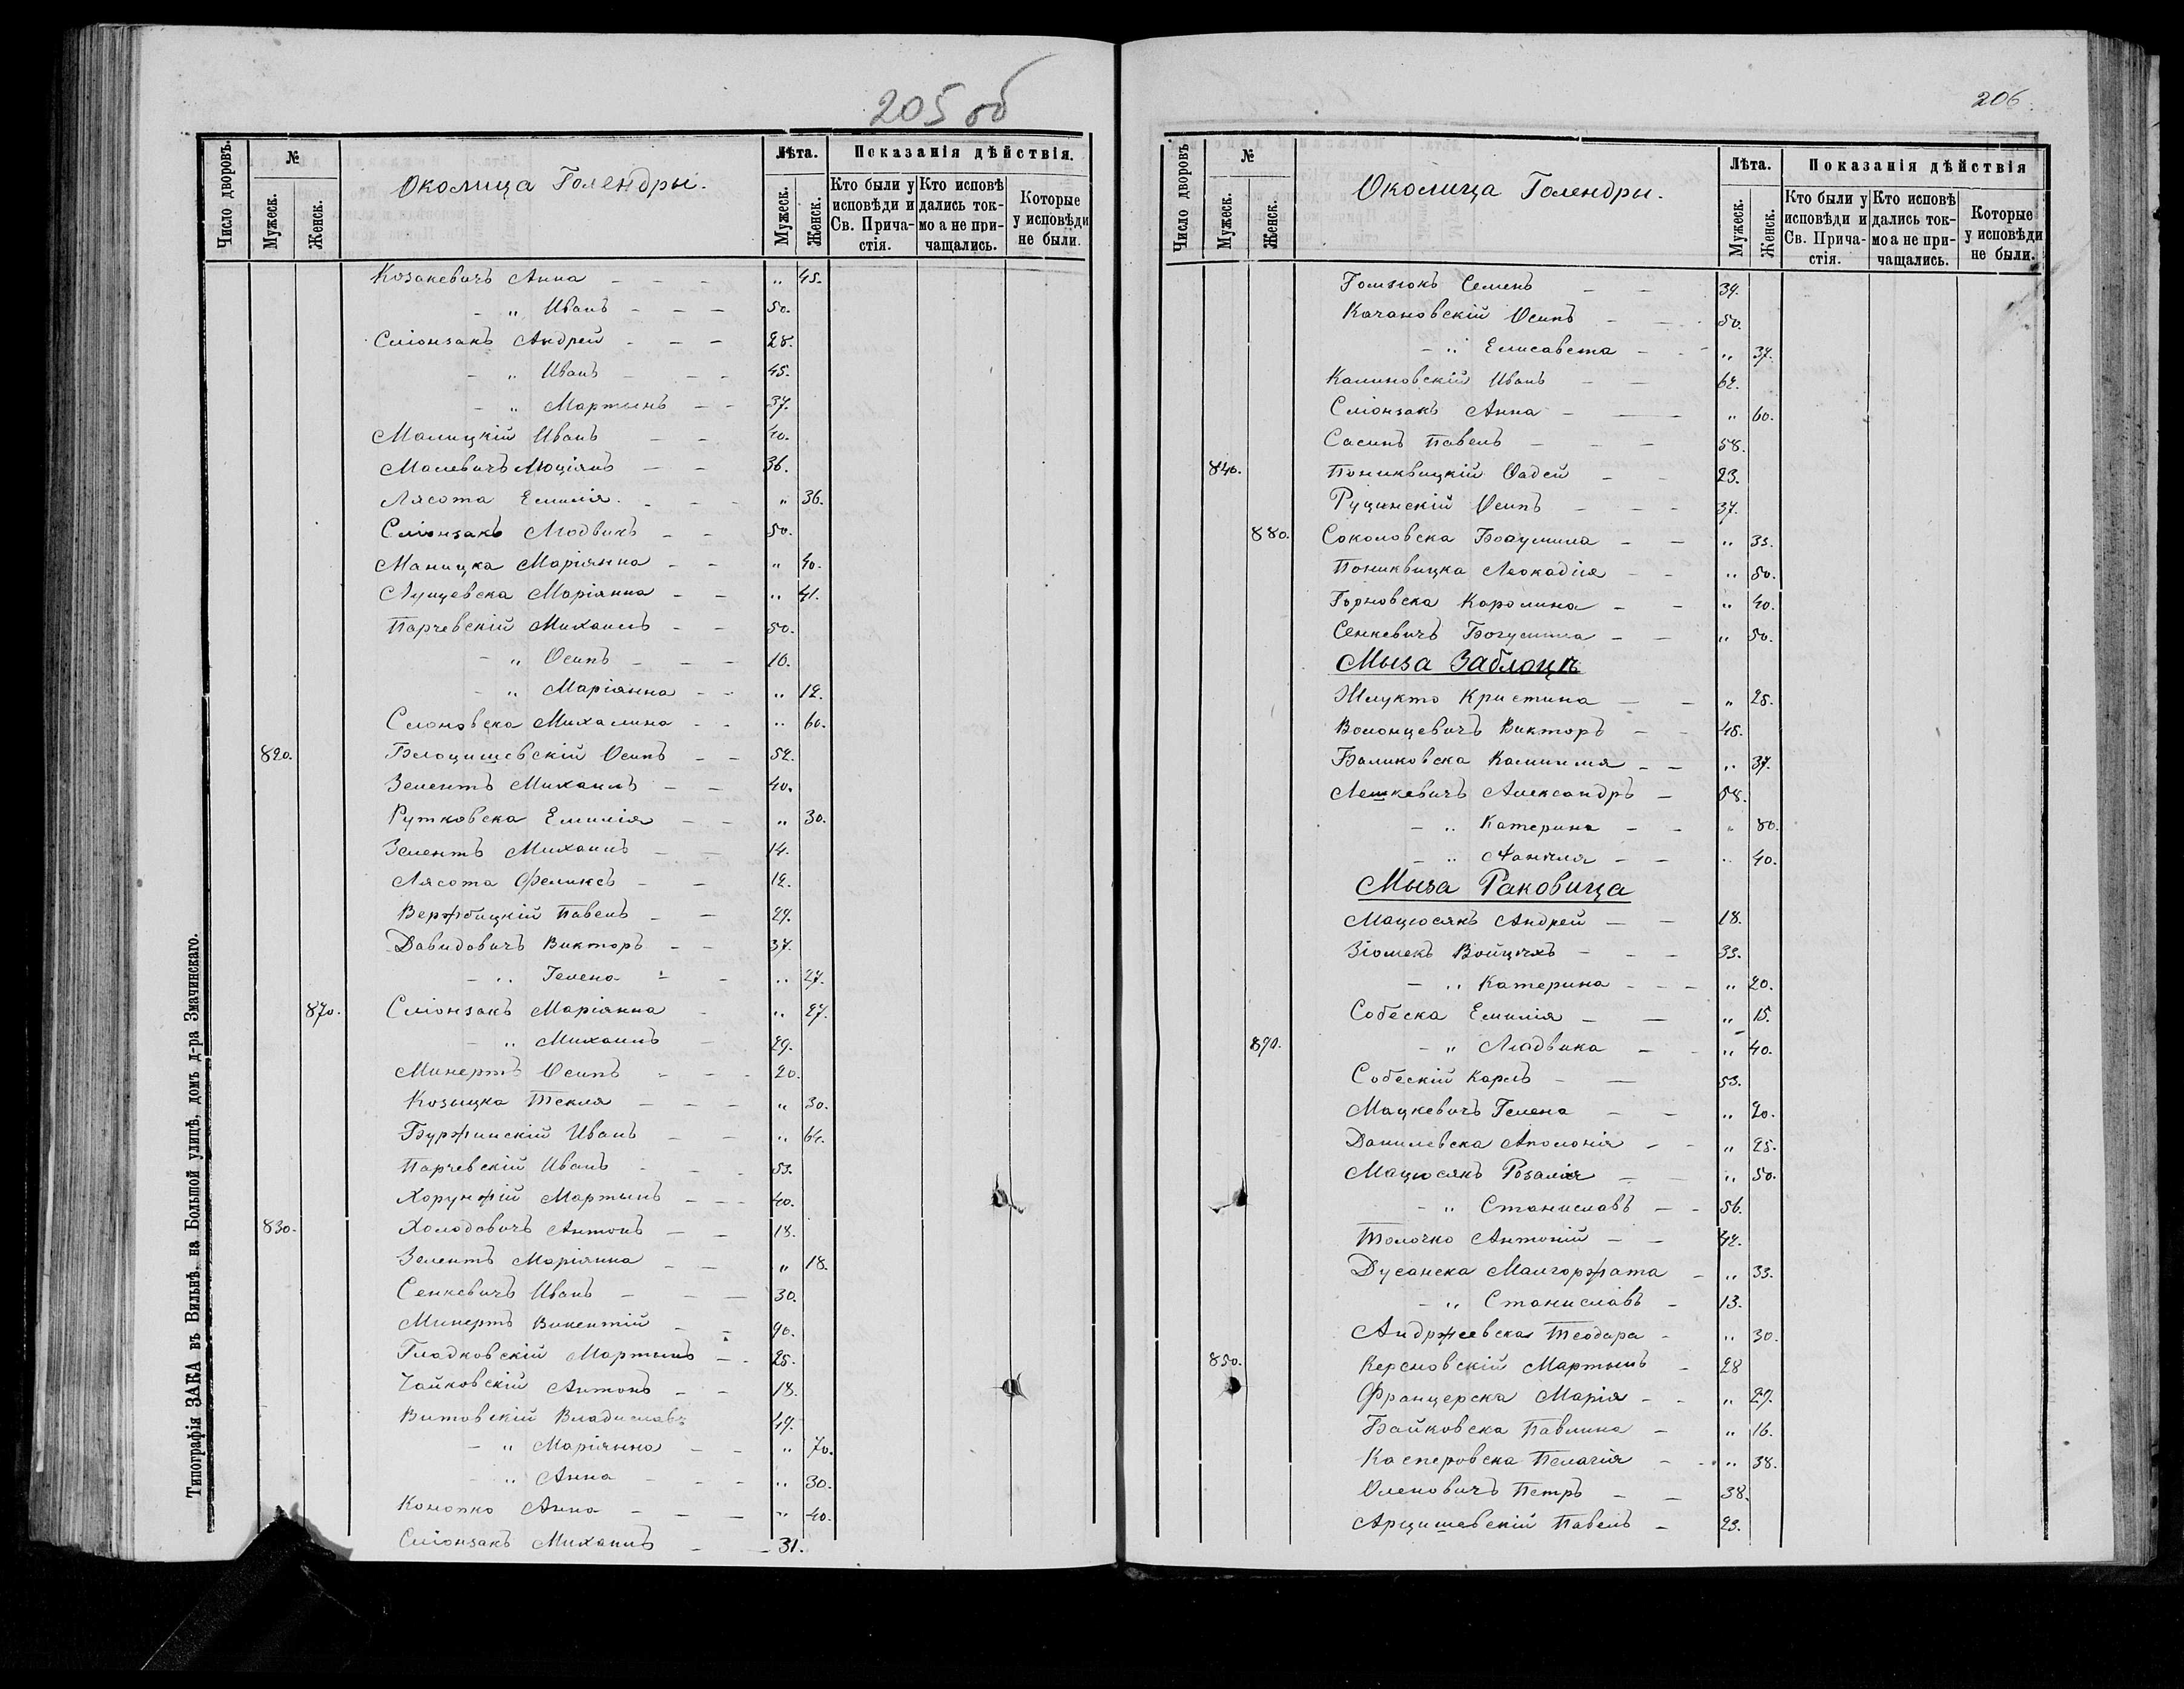 205 об
Число дворовъ.
№
Мужеск.
Женск.
Околица Голендры.
Лѣта.
Мужеск.
Женск.
Показанія дѣйствія.
Кто были у исповѣди и Св. Прича-стія.
Кто исповѣ дались ток-мо а не при-чащались.
Которые у исповѣди не были.
Козакевичъ Анна - - - „ 45.
- „ Иванъ - - - 50.
Сліонзакъ Андрей - - - 28.
- „ Иванъ - - - 45.
- „ Мартынъ - - 37.
Малицкій Иванъ - - 40.
Малевичъ Люціянъ - - 36.
Лясота Емилія - - - „ 36.
Сліонзакъ Людвикъ - - 50.
Маницка Маріянна - - „ 40.
Лущевска Маріянна - - „ 41.
Парчевскій Михаилъ - - 50.
- „ Осипъ - - - 10.
- „ Маріянна - - „ 12.
Слоновска Михалина - - „ 60.
820. Блоцишевскій Осипъ - - 52.
Зелентъ Михаилъ - - 40.
Рутковска Емилія - - „ 30.
Зелентъ Михаилъ - - 14.
Лясота Феликсъ - - 12.
Вержбицкій Павелъ - - 27.
Давидовичъ Викторъ - - 37.
- „ Гелена - - „ 27.
870. Сліонзакъ Маріянна - „ 27.
- „ Михаилъ - 29.
Минертъ Осипъ - - - 20.
Козыцка Текля - - - „ 30.
Буржинскій Иванъ - - „ 64.
Парчевскій Иванъ - - - 53.
Хорунжій Мартынъ - - - 40.
830. Холодовичъ Антонъ - - 18.
Зелентъ Маріянна - - „ 18.
Сенкевичъ Иванъ - - - 30.
Минертъ Викентій - - 90.
Гладковскій Мартынъ - - 25.
Чайковскій Антонъ - - 18.
Витовскій Владиславъ 47.
- „ Маріянна - - „ 70.
- „ Анна - - - „ 30.
Конопко Анна - - - „ 40.
Сліонзакъ Михаилъ - - 31.
Типографія ЗАКА въ Вильнѣ, на Большой улицѣ, домъ д-ра Змачинскаго.
206.
Число дворовъ
№
Мужеск.
Женск.
Околица Голендры.
Лѣта.
Мужеск.
Женск.
Показанія дѣйствія
Кто были у исповѣди и Св. Прича-стія.
Кто исповѣ дались ток-мо а не при-чащались.
Которые у исповѣди не были.
Семенъ - - 34.
Качановскій Осипъ - - 50.
- „ Елисавета - - „ 37.
Калиновскій Иванъ - - 62.
Сліонзакъ Анна - - „ 60.
Сасинъ Павелъ - - - 58.
840. Пониквицкій Фадей - - 23.
Рущинскій Осипъ - - - 37.
880. Соколовска Богумила - - „ 33.
Пониквицка Леокадія - - „ 50.
Горновска Каролина - - „ 40.
Сенкевичъ Богумила - - „ 50.
Мыза Заблоцк
Жлукто Кристина - - „ 25.
Волонцевичъ Викторъ - - 48.
Баликовска Камилия - - „ 37.
Лешкевичъ Александръ - 58.
- „ Катерина - - „ 80.
- „ - - „ 40.
Мыза Раковица
Мацюсякъ Андрей - - 18.
Зіомекъ Войцѣхъ - - - 33.
- „ Катерина - - - „ 20.
Собеска Емилія - - „ 15.
890. - „ Людвика - - „ 40.
Собескій Карлъ - - 53.
Мацкевичъ Гелена - - „ 20.
Данилевска Аполонія - - „ 25.
Мацюсякъ Розалія - - „ 50.
- „ Станиславъ - - 56.
Толочко Антоній - - 42.
Дусанска Малгоржата - „ 33.
- „ Станиславъ - 13.
Анджеевска Теодора - „ 30.
850. Керсновскій Мартынъ - 28
Марія - - „ 27.
Байковска Павлина - „ 16.
Касперовска Пелагія - - „ 38.
Оленовичъ Петръ - - 38.
Арцишевскій Павелъ - 23.